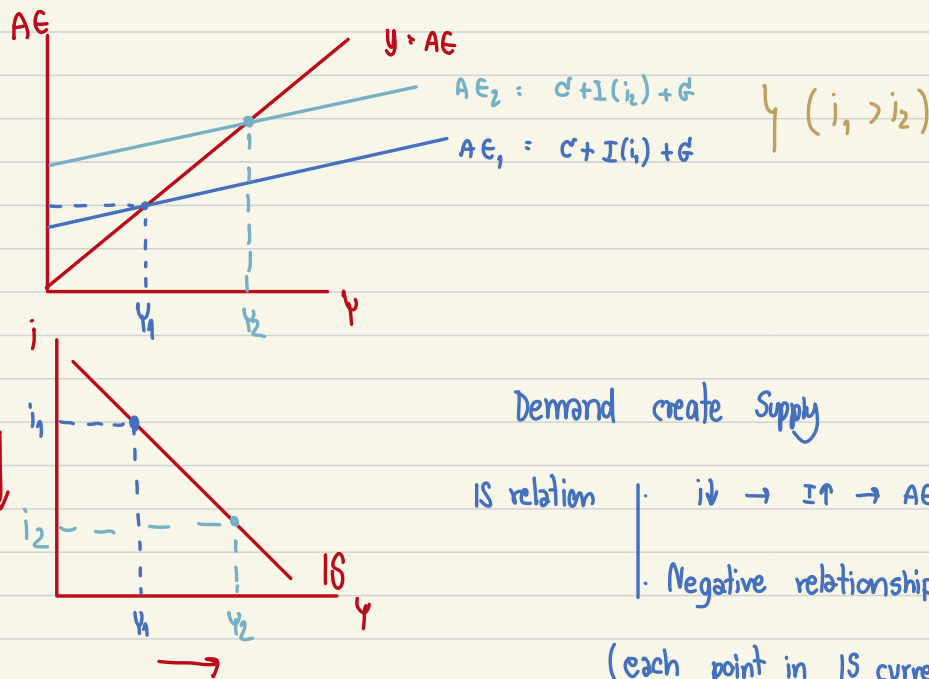 AE
Y = AE
AE₂ = C + I(i₂) + G
AE₁ = C + I(i₁) + G
Y (i₁ > i₂)
Y₁ Y₂ Y
i
i₁
i₂
IS
Y₁ Y₂ Y
Demand create Supply
IS relation · i↓ → I↑ → AE
· Negative relationship
(each point in IS curve